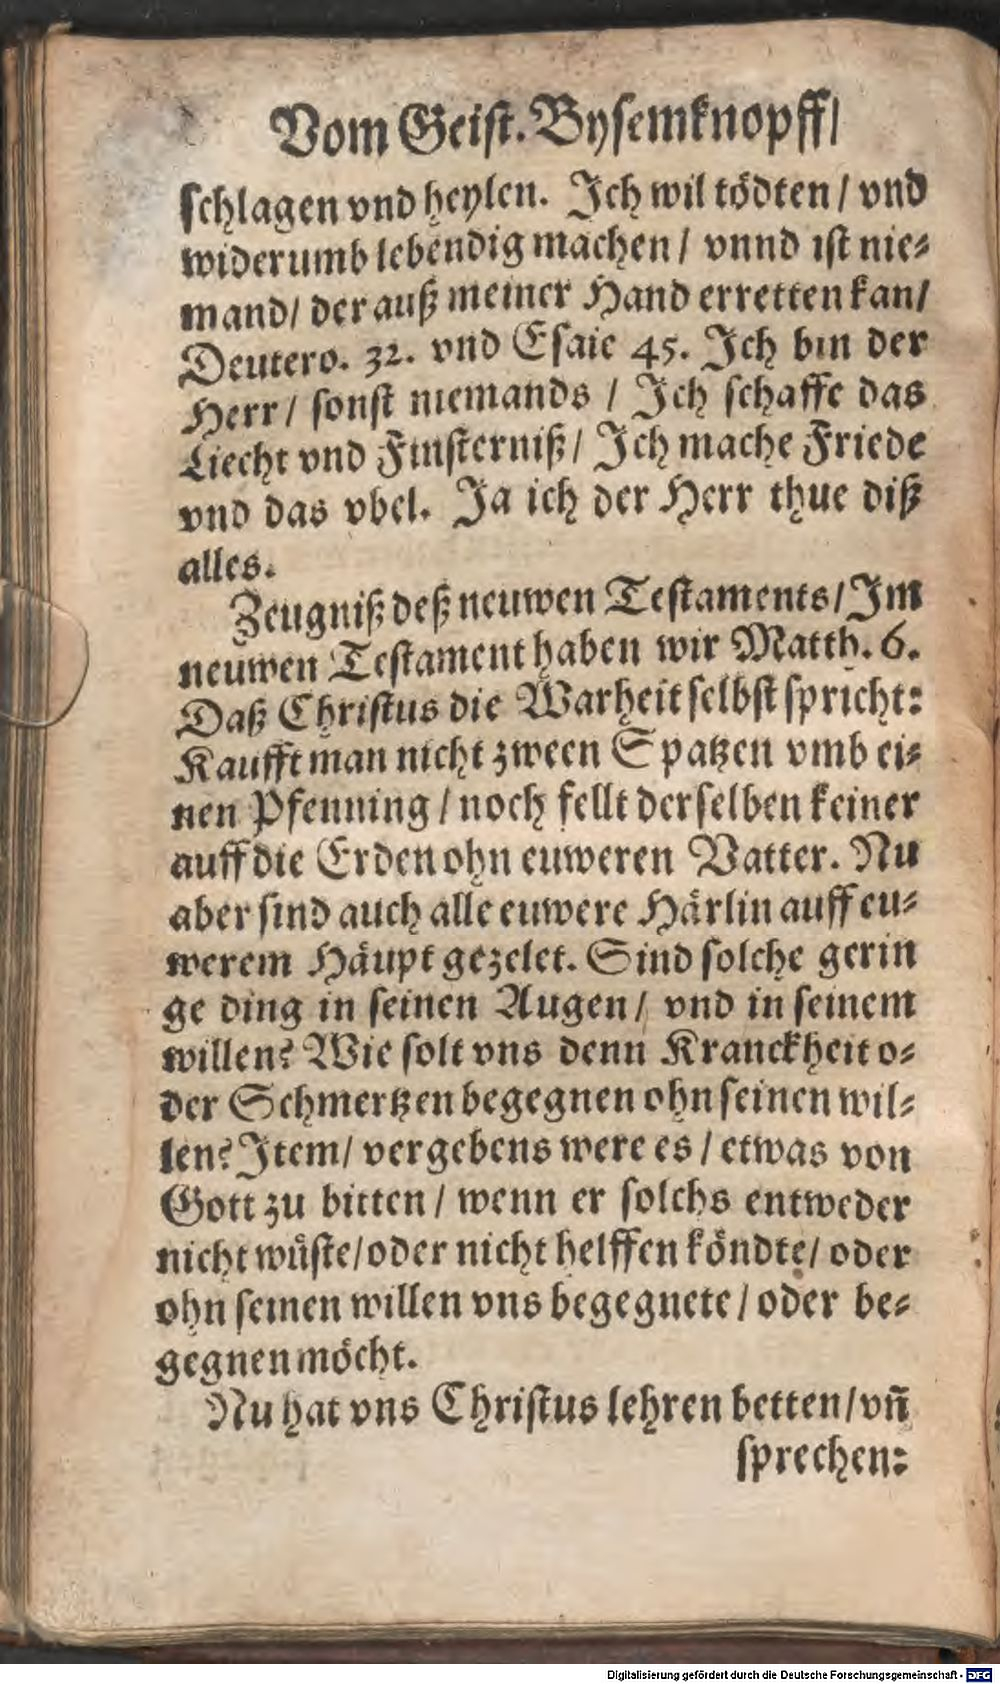 Vom Geist. Bysemknopff/
schlagen vnd heylen. Jch wil tödten / vnd
widerumb lebendig machen / vnnd ist nie⸗
mand/ der auß meiner Hand erretten kan/
Deutero. 32. vnd Esaie 45. Jch bin der
Herr/ sonst niemands / Jch schaffe das
Liecht vnd Finsterniß/ Jch mache Friede
vnd das vbel. Ja ich der Herr thue diß
alles.
Zeugniß deß neuwen Testaments/ Jm
neuwen Testament haben wir Matth. 6.
Daß Christus die Warheit selbst spricht:
Kaufft man nicht zween Spatzen vmb ei⸗
nen Pfenning / noch fellt derselben keiner
auff die Erden ohn euweren Vatter. Nu
aber sind auch alle euwere Härlin auff eu⸗
werem Häupt gezelet. Sind solche gerin
ge ding in seinen Augen/ vnd in seinem
willen? Wie solt vns denn Kranckheit o⸗
der Schmertzen begegnen ohn seinen wil⸗
len? Jtem/ vergebens were es / etwas von
Gott zu bitten / wenn er solchs entweder
nicht wüste/ oder nicht helffen köndte/ oder
ohn seinen willen vns begegnete / oder be⸗
gegnen möcht.
Nu hat vns Christus lehren betten/ vñ
sprechen:
Digitalisierung gefördert durch die Deutsche Forschungsgemeinschaft - DFG